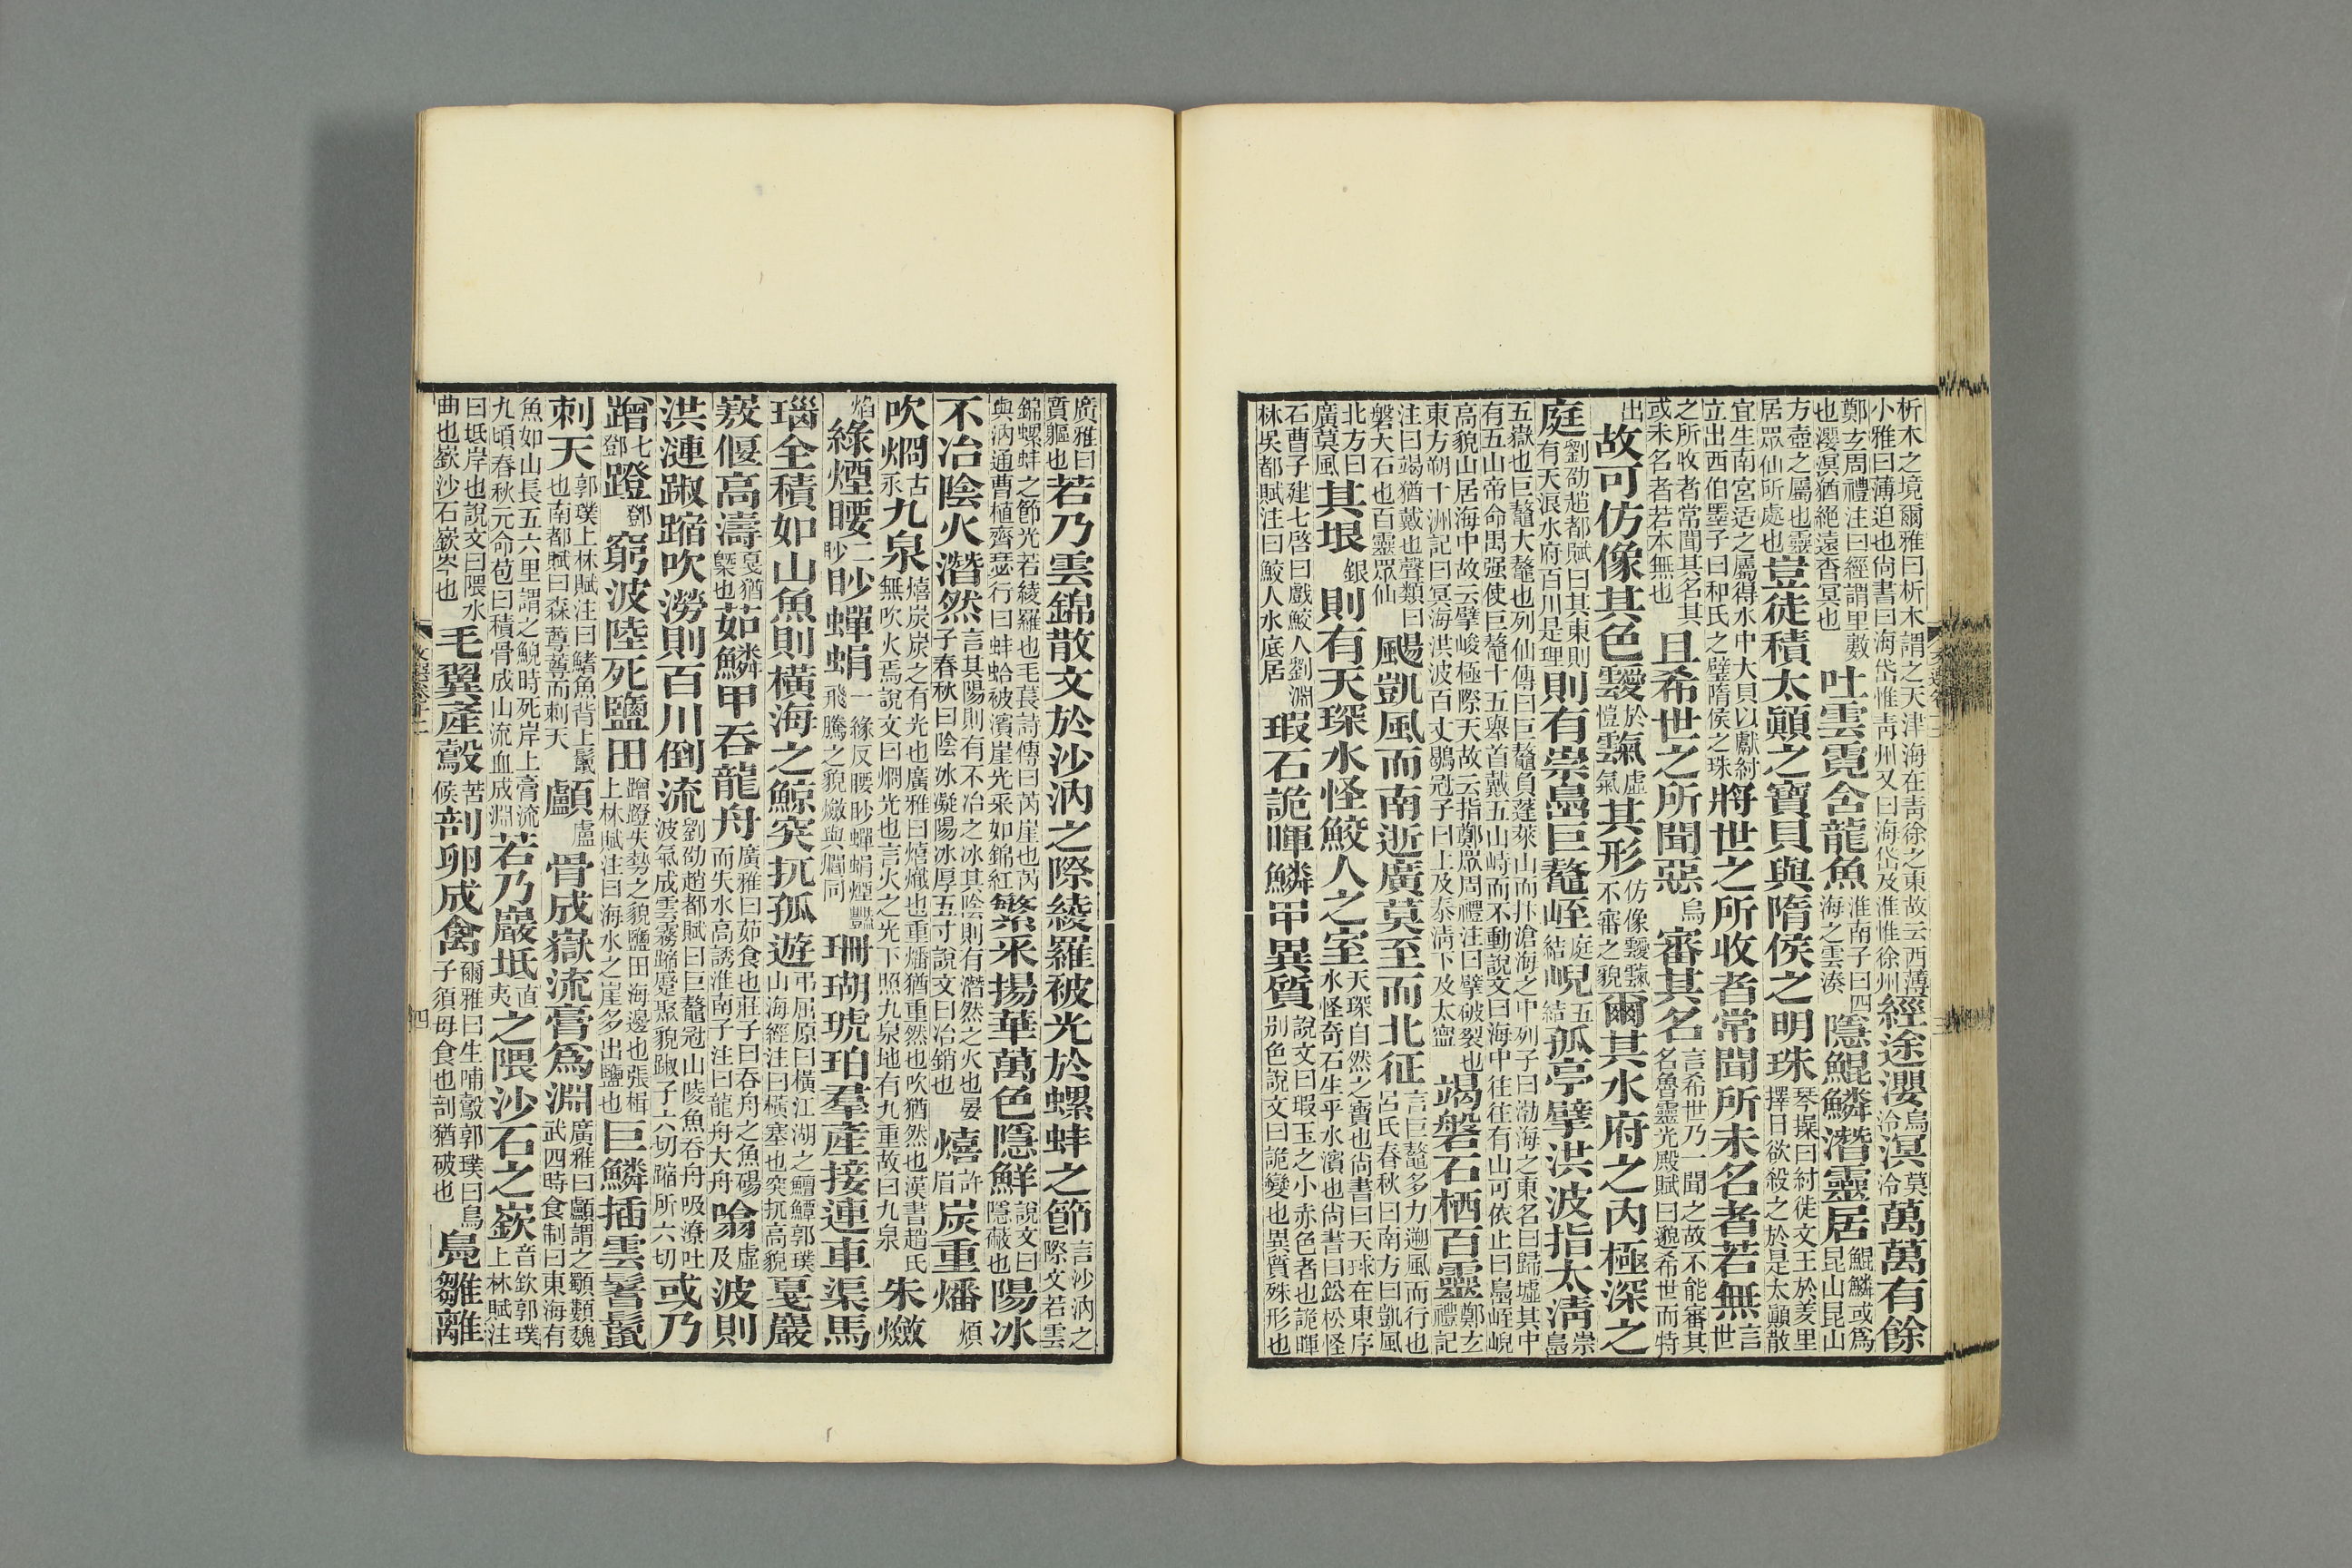 析木之境爾雅曰析木謂之天津海在靑徐之東故云西薄小雅曰薄迫也尙書曰海岱惟靑州又曰海岱及淮惟徐州經途瀴烏泠溟莫泠萬萬有餘
鄭玄周禮注曰經謂里數也瀴溟猶絕遠杳冥也吐雲霓含龍魚淮南子曰四海之雲湊隱鯤鱗潛靈居鯤鱗或爲昆山昆山
方壺之屬也靈居眾仙所處也豈徒積太顚之寶貝與隋侯之明珠琴操曰紂徒文王於羑里擇日欲殺之於是太顚散
宜生南宮适之屬得水中大貝以獻紂立出西伯墨子曰和氏之璧隋侯之珠將世之所收者常聞所未名者若無言世
之所收者常聞其名其或未名者若本無也且希世之所聞惡烏審其名言希世乃一聞之故不能審其名魯靈光殿賦曰邈希世而特
出故可仿像其色靉於愷霼虛氣其形仿像靉霼不審之貌爾其水府之內極深之
庭劉劭趙都賦曰其東則有天浪水府百川是理則有崇島巨鼇峌庭結峴五結孤亭擘洪波指太淸崇島
五嶽也巨鼇大鼇也列仙傳曰巨鼇負蓬萊山而抃滄海之中列子曰渤海之東名曰歸墟其中有五山帝命禺强使巨鼇十五舉首戴五山峙而不動說文曰海中往往有山可依止曰島峌峴
高貌山居海中故云擘峻極際天故云指鄭眾周禮注曰擘破裂也東方朔十洲記曰冥海洪波百丈鶡冠子曰上及泰淸下及太寧竭磐石栖百靈鄭玄禮記
注曰竭猶戴也聲類曰磐大石也百靈眾仙颺凱風而南逝廣莫至而北征言巨鼇多力遡風而行也呂氏春秋曰南方曰凱風
北方曰廣莫風其垠銀則有天琛水怪鮫人之室天琛自然之寶也尙書曰天球在東序水怪奇石生乎水濱也尙書曰鈆松怪
石曹子建七啓曰戲鮫人劉淵林吳都賦注曰鮫人水底居瑕石詭暉鱗甲異質說文曰瑕玉之小赤色者也詭暉別色說文曰詭變也異質殊形也
廣雅曰質軀也若乃雲錦散文於沙汭之際綾羅被光於螺蚌之節言沙汭之際文若雲
錦螺蚌之節光若綾羅也毛萇詩傳曰芮崖也芮與汭通曹植齊瑟行曰蚌蛤被濱崖光采如錦紅繁采揚華萬色隱鮮說文曰隱蔽也陽冰
不冶陰火潛然言其陽則有不冶之冰其陰則有潛然之火也晏子春秋曰陰冰凝陽冰厚五寸說文曰冶銷也熺許眉炭重燔煩
吹烱古永九泉熺炭炭之有光也廣雅曰熺熾也重燔猶重然也吹猶然也漢書趙氏無吹火焉說文曰烱光也言火之光下照九泉地有九重故曰九泉朱燩
焰綠煙腰一眇眇蟬蜎一緣反腰眇蟬蜎煙豔飛騰之貌燩與爓同珊瑚琥珀羣產接連車渠馬
瑙全積如山魚則橫海之鯨突扤孤遊弔屈原曰橫江湖之鱣鱏郭璞山海經注曰橫塞也突扤高貌戛巖
㟼偃高濤戛猶槩也茹鱗甲吞龍舟廣雅曰茹食也莊子曰吞舟之魚碭而失水高誘淮南子注曰龍舟大舟噏虛及波則
洪漣踧踖吹澇則百川倒流劉劭趙都賦曰巨鼇冠山陵魚吞舟吸潦吐波氣成雲霧蹜蹙聚貌踧子六切蹜所六切或乃
蹭七鄧蹬鄧窮波陸死鹽田蹭蹬失勢之貌鹽田海邊也張揖上林賦注曰海水之崖多出鹽也巨鱗插雲鬐鬣
刺天郭璞上林賦注曰鰭魚背上鬣也南都賦曰森䔿䔿而刺天顱盧骨成嶽流膏爲淵廣雅曰顱謂之顖顙魏武四時食制曰東海有
魚如山長五六里謂之鯢時死岸上膏流九頃春秋元命苞曰積骨成山流血成淵若乃巖坻直夷之隈沙石之嶔音欽郭璞上林賦注
曰坻岸也說文曰隈水曲也嶔沙石嶔岑也毛翼產鷇苦候剖卵成禽爾雅曰生哺鷇郭璞曰鳥子須母食也剖猶破也鳧雛離
四